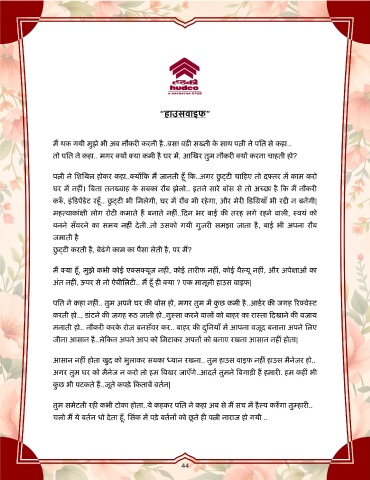 हडको
hudco
A NAVRATNA CPSE
“हाउसवाइफ”
मैं थक गयी मुझे भी अब नौकरी करनी है..बस! बड़ी सख्ती के साथ पत्नी ने पति से कहा..
तो पति ने कहा.. मगर क्यों क्या कमी है घर में, आखिर तुम नौकरी क्यों करना चाहती हो?
पत्नी ने शिथिल होकर कहा..क्योंकि मैं जानती हूँ कि..अगर छुट्टी चाहिए तो दफ्तर में काम करो
घर में नहीं। बिना तनख्वाह के सबका रौब झेलो.. इतने सारे बॉस से तो अच्छा है कि मैं नौकरी
करूँ, इंडिपेंडेंट रहूँ.. छुट्टी भी मिलेगी, घर में रौब भी रहेगा, और मेरी डिग्रियाँ भी रद्दी न बनेंगी|
महत्वाकांक्षी लोग रोटी कमाते हैं बनाते नहीं..दिन भर बाई की तरह लगे रहने वाली, स्वयं को
बनने सँवरने का समय नहीं देती..तो उसको गयी गुजरी समझा जाता है, बाई भी अपना रौब
जमाती है
छुट्टी करती है, बेढंगे काम का पैसा लेती है, पर मैं?
मैं क्या हूँ, मुझे कभी कोई एक्सक्यूज नहीं, कोई तारीफ नहीं, कोई वैल्यू नहीं, और अपेक्षाओं का
अंत नहीं, ऊपर से नो ऐबीलिटी.. मैं हूँ ही क्या ? एक मामूली हाउस वाइफ|
पति ने कहा नहीं.. तुम अपने घर की बॉस हो, मगर तुम में कुछ कमी है..आर्डर की जगह रिक्वेस्ट
करती हो.., डांटने की जगह रूठ जाती हो..गुस्सा करने वालों को बाहर का रास्ता दिखाने की बजाय
मनाती हो.. नौकरी करके रोज बनसँवर कर.. बाहर की दुनियाँ में अपना वजूद बनाना अपने लिए
जीना आसान है..लेकिन अपने आप को मिटाकर अपनों को बनाए रखना आसान नहीं होता|
आसान नहीं होता खुद को भुलाकर सबका ध्यान रखना.. तुम हाउस वाइफ नहीं हाउस मैनेजर हो..
अगर तुम घर को मैनेज न करो तो हम बिखर जाएँगे..आदतें तुमने बिगाड़ी हैं हमारी. हम कहीं भी
कुछ भी पटकते हैं..जूते कपड़े किताबें बर्तन|
तुम समेटती रही कभी टोका होता..ये कहकर पति ने कहा अब से मैं सच में हैल्प करूँगा तुम्हारी..
चलो मैं ये बर्तन धो देता हूँ, सिंक में पड़े बर्तनों को छूते ही पत्नी नाराज हो गयी ..
44